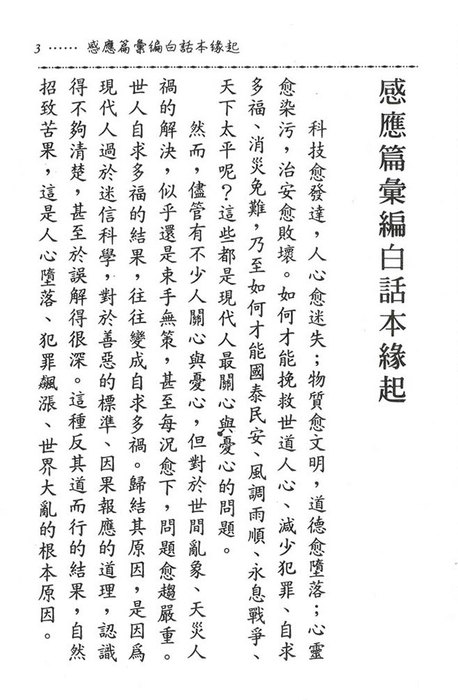 3 …… 感應篇彙編白話本緣起
感應篇彙編白話本緣起
科技愈發達，人心愈迷失；物質愈文明，道德愈墮落；心靈
愈染污，治安愈敗壞。如何才能挽救世道人心、減少犯罪、自求
多福、消災免難，乃至如何才能國泰民安、風調雨順、永息戰爭、
天下太平呢？這些都是現代人最關心與憂心的問題。
然而，儘管有不少人關心與憂心，但對於世間亂象、天災人
禍的解決，似乎還是束手無策，甚至每況愈下，問題愈趨嚴重。
世人自求多福的結果，往往變成自求多禍。歸結其原因，是因爲
現代人過於迷信科學，對於善惡的標準、因果報應的道理，認識
得不夠清楚，甚至於誤解得很深。這種反其道而行的結果，自然
招致苦果，這是人心墮落、犯罪飆漲、世界大亂的根本原因。